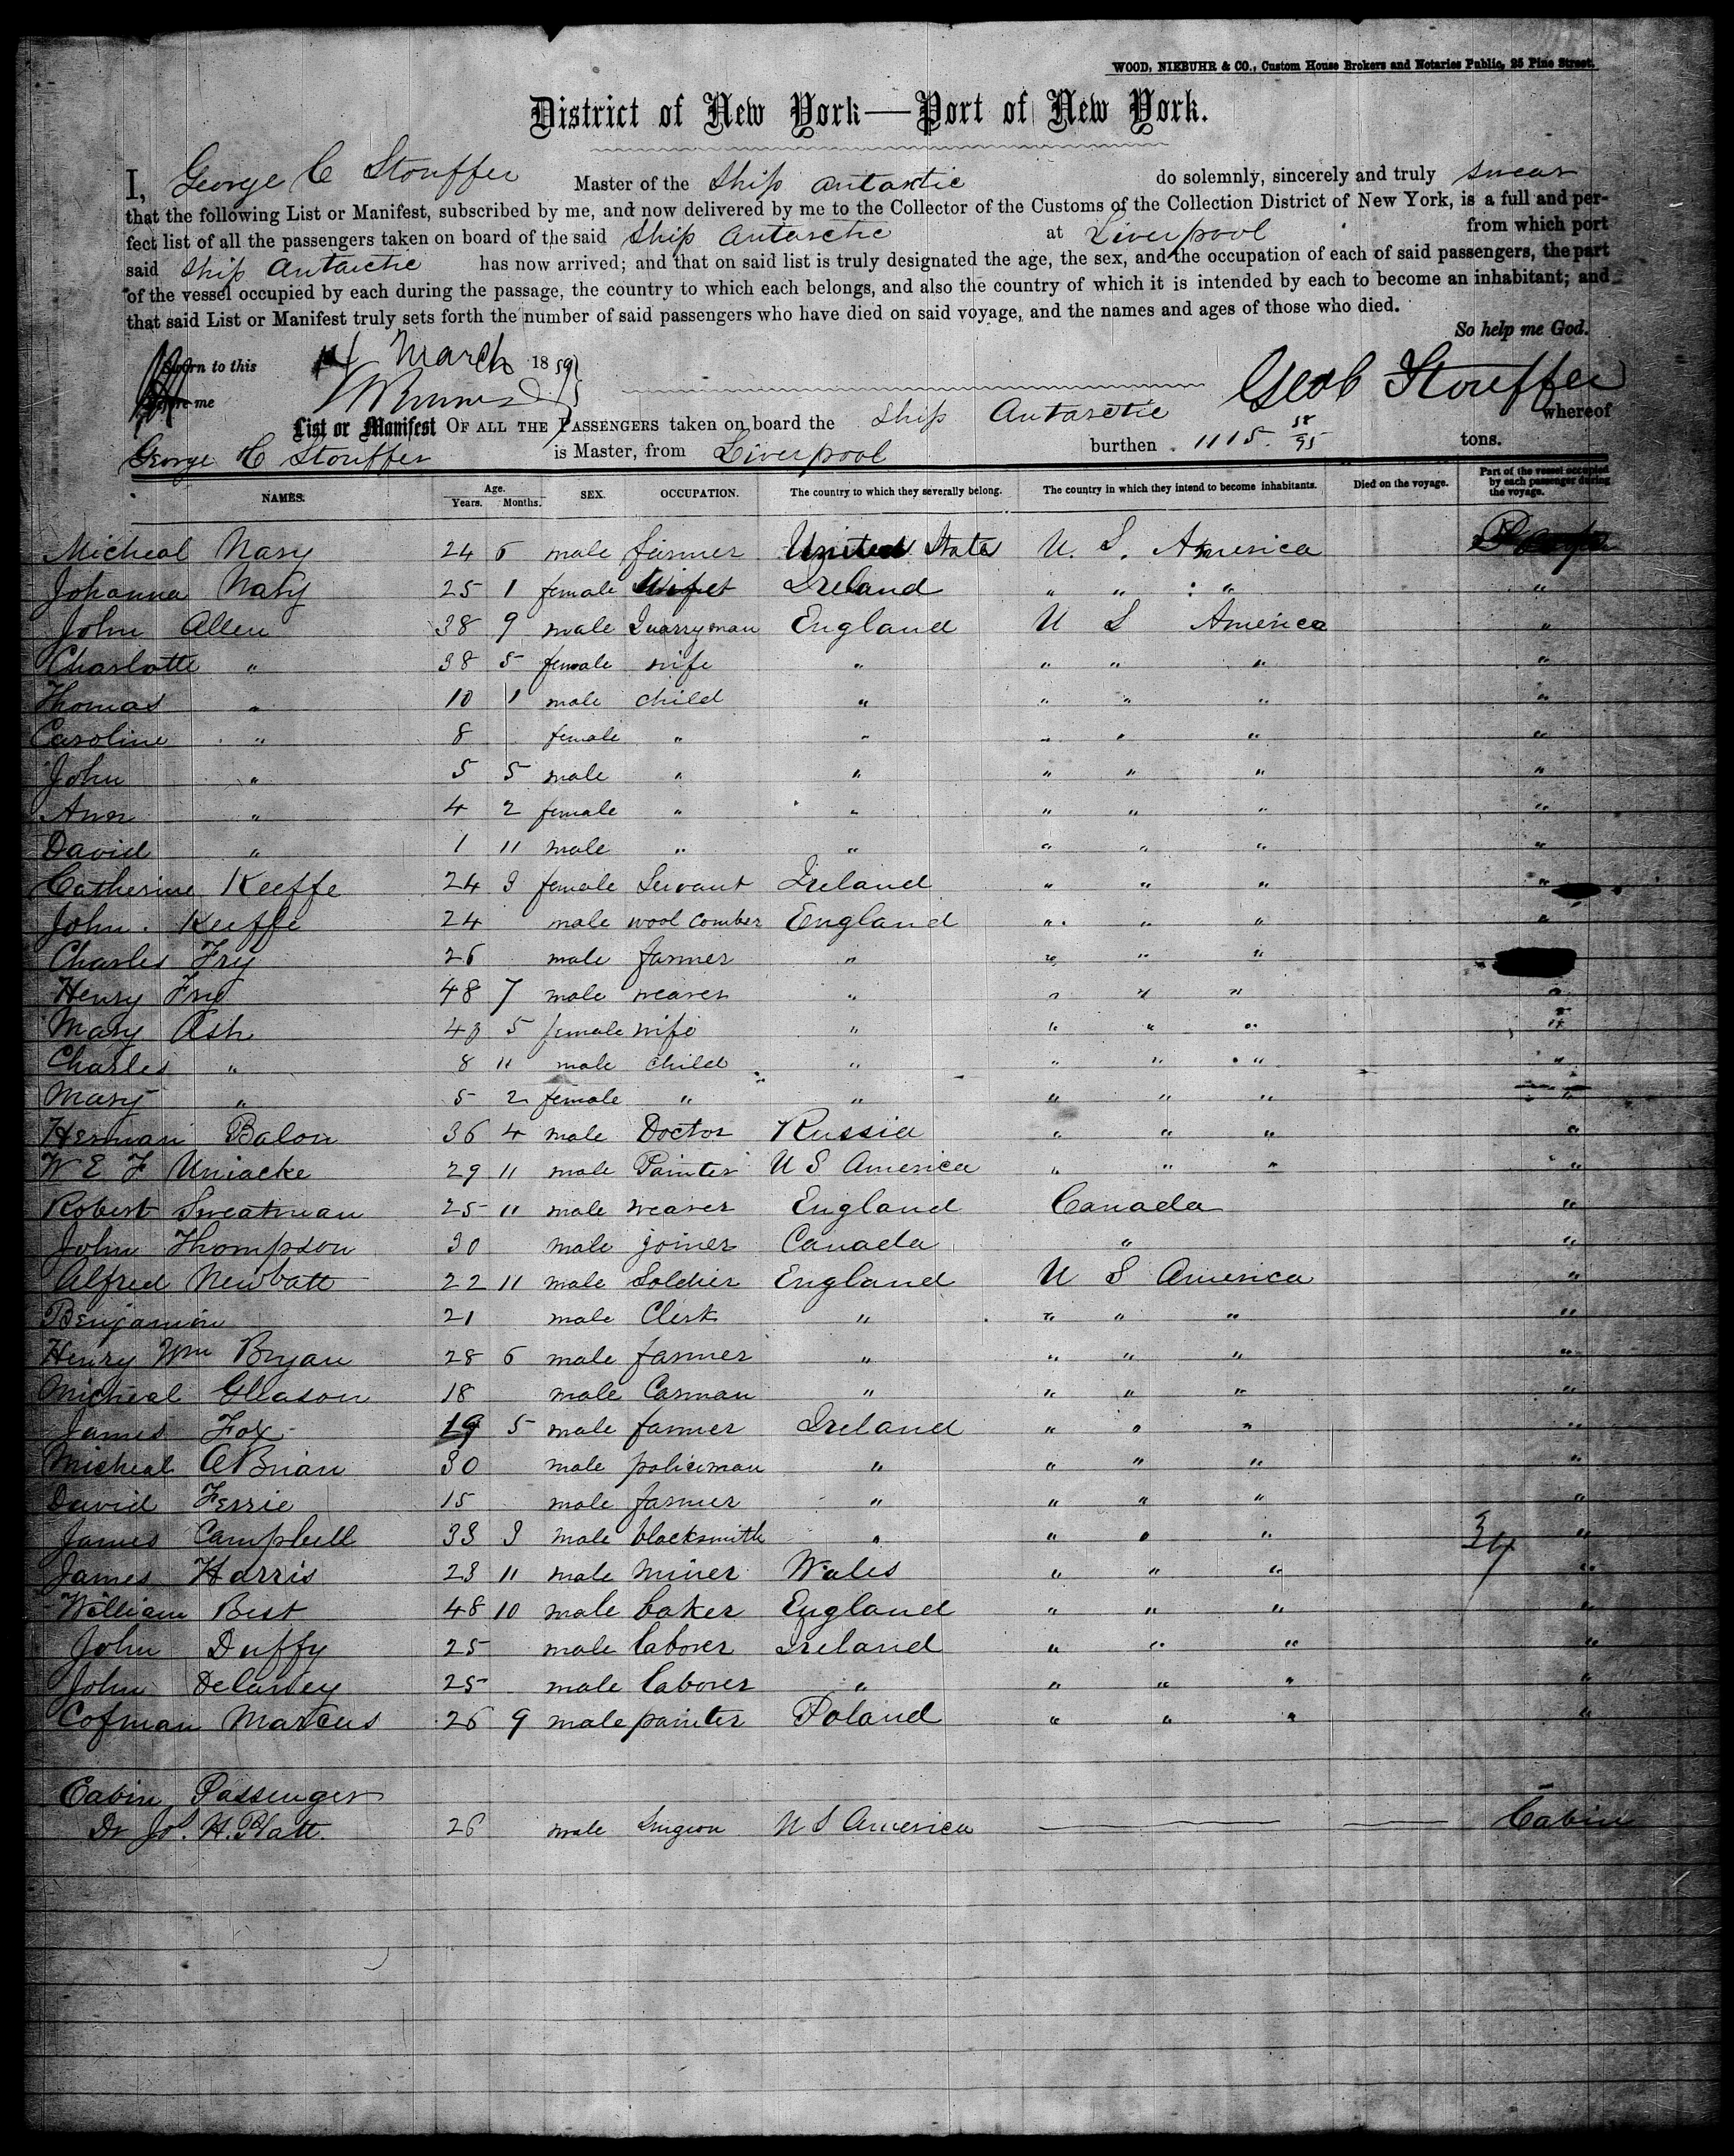 WOOD, NIEBUHR & CO., Custom House Brokers and Notaries Public, 25 Pine Street.
District of New York—Port of New York.
I, George C Stouffer Master of the Ship Antarctic do solemnly, sincerely and truly swear
that the following List or Manifest, subscribed by me, and now delivered by me to the Collector of the Customs of the Collection District of New York, is a full and per-
fect list of all the passengers taken on board of the said Ship Antarctic at Liverpool from which port
said Ship Antarctic has now arrived; and that on said list is truly designated the age, the sex, and the occupation of each of said passengers, the part
of the vessel occupied by each during the passage, the country to which each belongs, and also the country of which it is intended by each to become an inhabitant; and
that said List or Manifest truly sets forth the number of said passengers who have died on said voyage, and the names and ages of those who died.
So help me God.
Sworn to this March 1859
Before me Geo C Stouffer
List or Manifest OF ALL THE PASSENGERS taken on board the Ship Antarctic whereof
George C Stouffer is Master, from Liverpool burthen 1115 58/95 tons.
NAMES. Age. Years. Months. SEX. OCCUPATION. The country to which they severally belong. The country in which they intend to become inhabitants. Died on the voyage. Part of the vessel occupied by each passenger during the voyage.
Micheal Nary 24 6 male farmer United States U. S. America
Johanna Nary 25 1 female Wife Ireland " " " "
John Allen 38 9 male Quarryman England U S America "
Charlotte " 38 5 female wife " " " " "
Thomas " 10 1 male child " " " " "
Caroline " 8 female " " " " " "
John " 5 5 male " " " " " "
Ann " 4 2 female " " " " " "
David " 1 11 male " " " " " "
Catherine Keeffe 24 3 female Servant Ireland " " " "
John Keeffe 24 male wool comber England " " " "
Charles Fry 26 male farmer " " " "
Henry Fry 48 7 male weaver " " " " "
Mary Ash 40 5 female wife " " " " "
Charles " 8 11 male child " " " " "
Mary " 5 2 female " " " " " "
Herman Balon 36 4 male Doctor Russia " " " "
W E F Uniacke 29 11 male Painter U S America " " " "
Robert Sweatman 25 11 male weaver England Canada "
John Thompson 30 male joiner Canada " "
Alfred Newbatt 22 11 male Soldier England U S America "
Benjamin 21 male Clerk " " " " "
Henry Wm Bryan 28 6 male farmer " " " " "
Micheal Gleason 18 male Carman " " " " "
James Fox 19 5 male farmer Ireland " " " "
Micheal OBrian 30 male policeman " " " " "
David Ferrie 15 male farmer " " " " "
James Campbell 33 3 male blacksmith " " " " "
James Harris 23 11 male miner Wales " " " "
William Best 48 10 male baker England " " " "
John Duffy 25 male laborer Ireland " " " "
John Delaney 25 male laborer " " " " "
Cofman Marcus 26 9 male painter Poland " " " "
Cabin Passenger
Dr Jos. H. Platt. 26 male Surgeon U S America Cabin